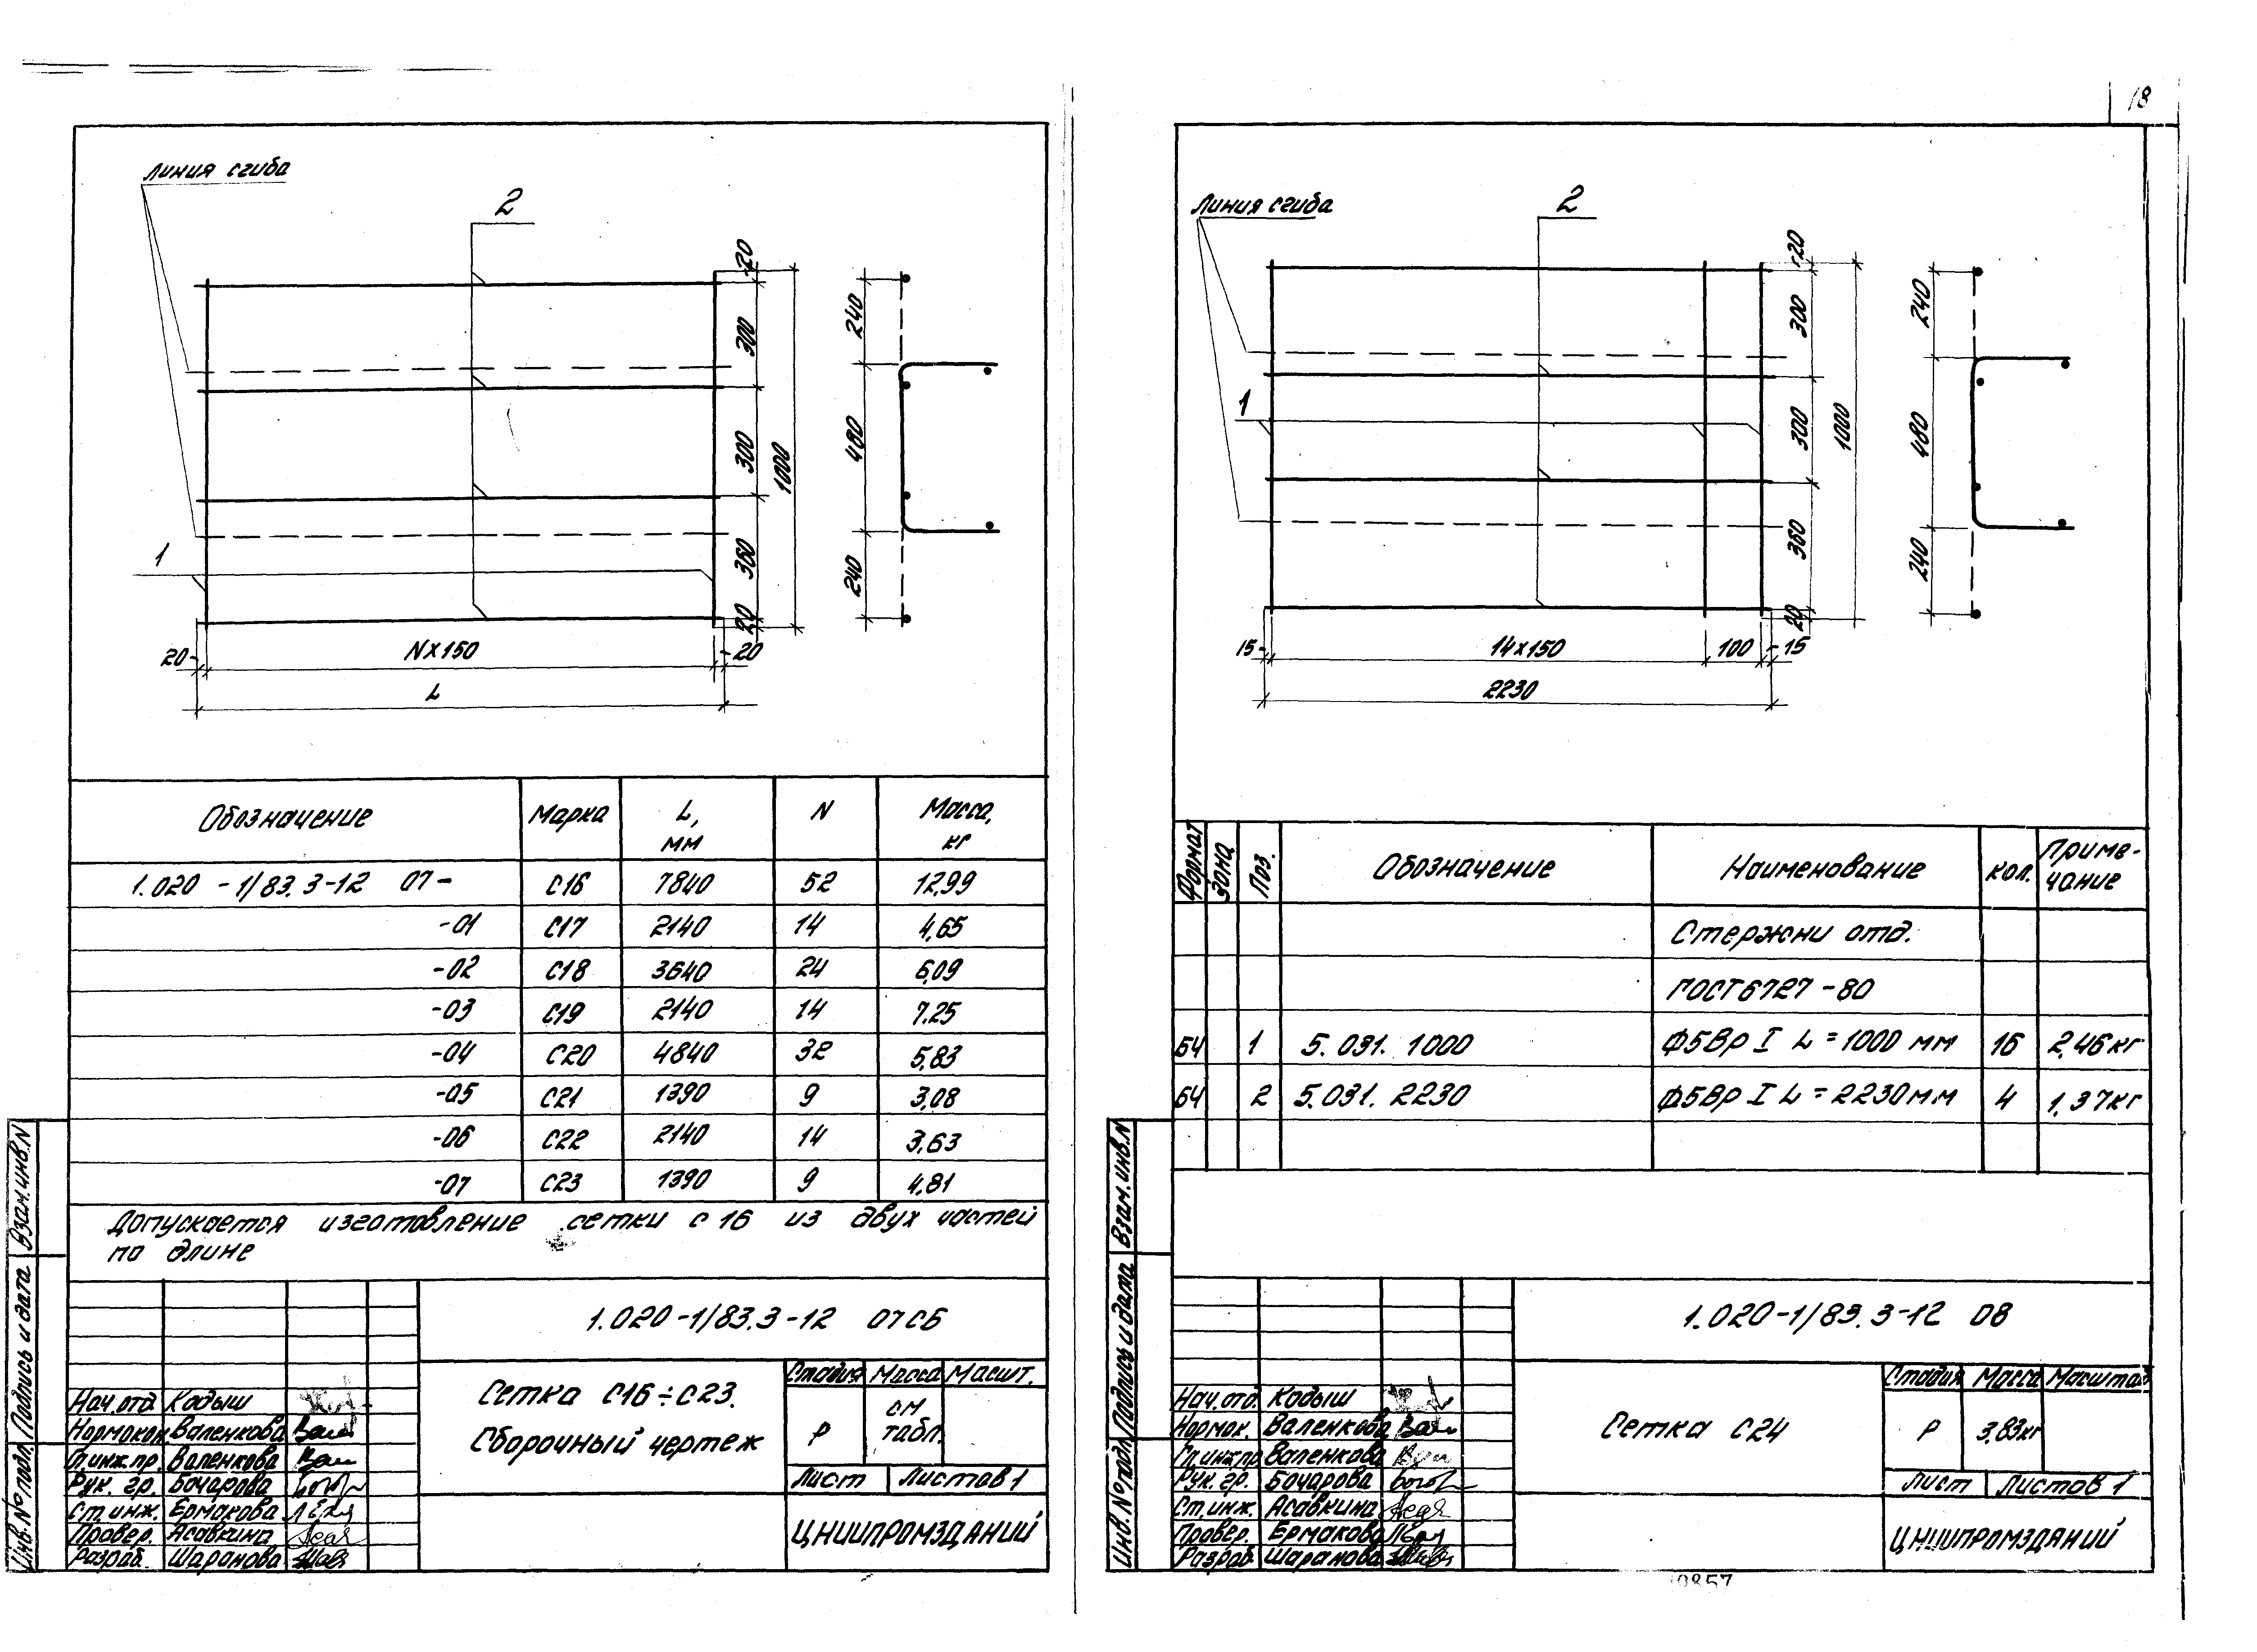 18
Линия сгиба
2
20
300
300
360
20
1000
1
20
N×150
20
L
240
480
240
Обозначение Марка L, мм N Масса, кг
1.020-1/83.3-12 07- С16 7840 52 12,99
-01 С17 2140 14 4,65
-02 С18 3640 24 6,09
-03 С19 2140 14 7,25
-04 С20 4840 32 5,83
-05 С21 1390 9 3,08
-06 С22 2140 14 3,63
-07 С23 1390 9 4,81
Допускается изготовление сетки С16 из двух частей
по длине
1.020-1/83.3-12 07СБ
Сетка С16÷С23.
Сборочный чертеж
Стадия Масса Масшт.
Р см табл.
Лист Листов 1
ЦНИИПРОМЗДАНИЙ
Нач.отд Кодыш
Нормокон. Валенкова
Гл.инж.пр. Валенкова
Рук. гр. Бочарова
Ст.инж. Ермакова
Провер. Асавкина
Разраб. Шаранова
Инв.№подл. Подпись и дата Взам.инв.N
Линия сгиба
2
20
300
300
360
20
1000
1
15
14×150
100
15
2230
240
480
240
Формат Зона Поз. Обозначение Наименование Кол. Приме-
чание
Стержни отд.
ГОСТ 6727-80
БЧ 1 5.031.1000 Ф5Вр I L=1000 мм 16 2,46кг
БЧ 2 5.031.2230 Ф5Вр I L=2230мм 4 1,37кг
1.020-1/83.3-12 08
Сетка С24
Стадия Масса Масштаб
Р 3,83кг
Лист Листов 1
ЦНИИПРОМЗДАНИЙ
Нач.отд. Кодыш
Нормок. Валенкова
Гл.инж.пр Валенкова
Рук. гр. Бочарова
Ст.инж. Асавкина
Провер. Ермакова
Разраб. Шаранова
Инв.№подл. Подпись и дата Взам.инв.N